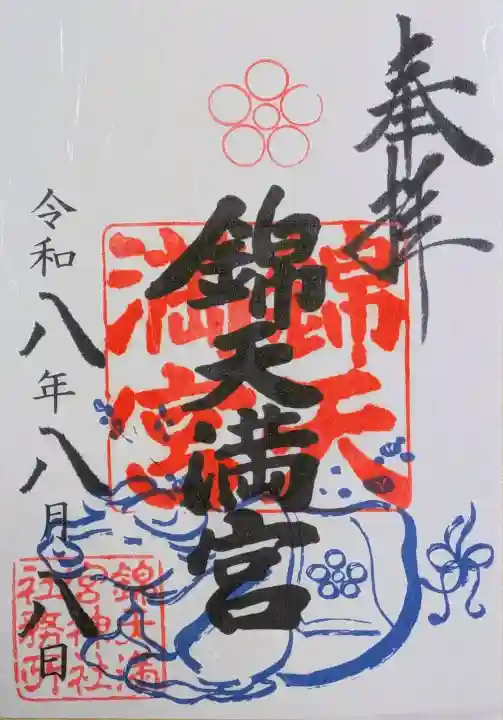 奉拝
錦天満宮
錦天満宮
令和八年八月八日
錦天満
宮神社
社務所